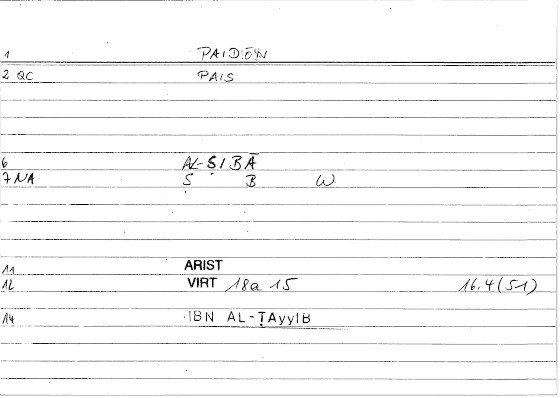 1 PAIDŌN
2 QC PAIS
6 AL-ṢIBĀ
7 NA Ṣ B W
11 ARIST
12 VIRT 18a 15 16.4 (51)
14 IBN AL-ṬAyyIB